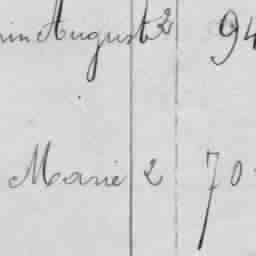 August 2 94
Marie 2 70